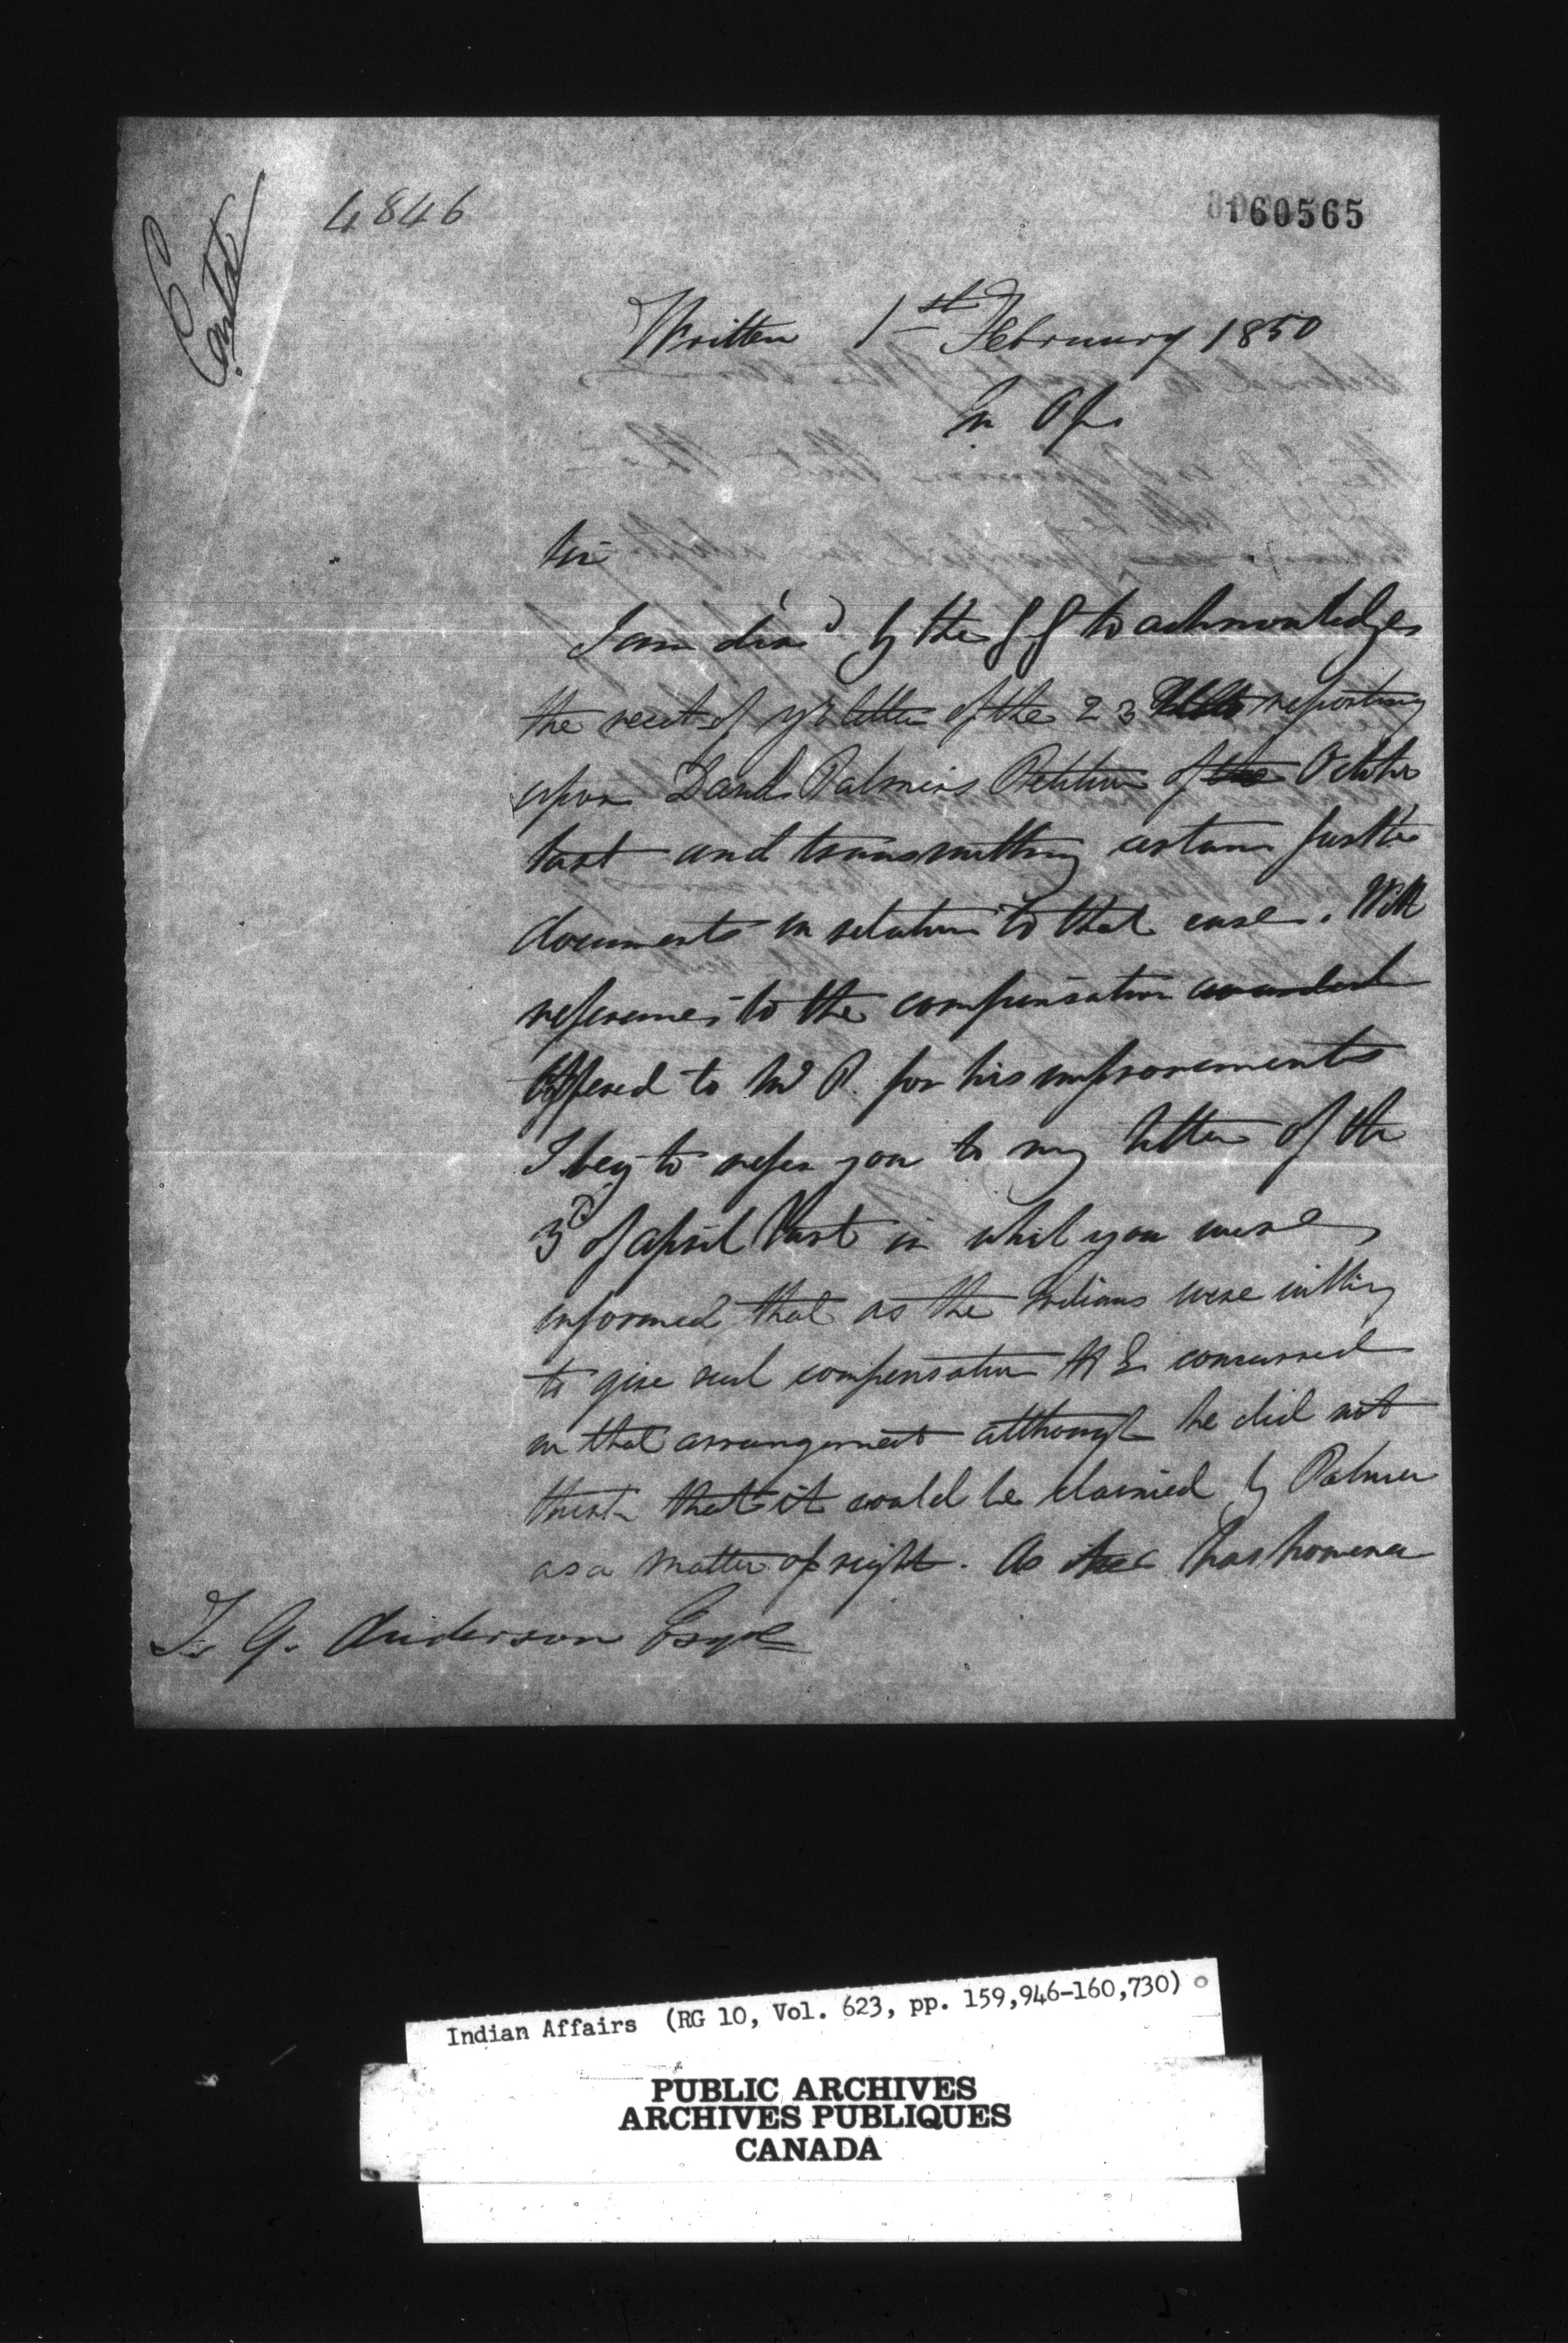 Entd
4846
160565
Written 1st February 1850
In Of.
Sir
I am dird by the GG to acknowledge
the recet of yr letter of the 23 reporting
upon David Palmers Petition of the October
last and transmitting certain further
documents in relation to that case. With
reference to the compensation awarded
offered to Mr P. for his improvements
I beg to refer you to my letter of the
3d of April last in which you were
informed that as the Indians were willing
to give such compensation H E concurred
in that arrangement although he did not
think that it could be claimed by Palmer
as a matter of right. As he has however
T. G. Anderson Esqre
Indian Affairs (RG 10, Vol. 623, pp. 159,946-160,730)
PUBLIC ARCHIVES
ARCHIVES PUBLIQUES
CANADA